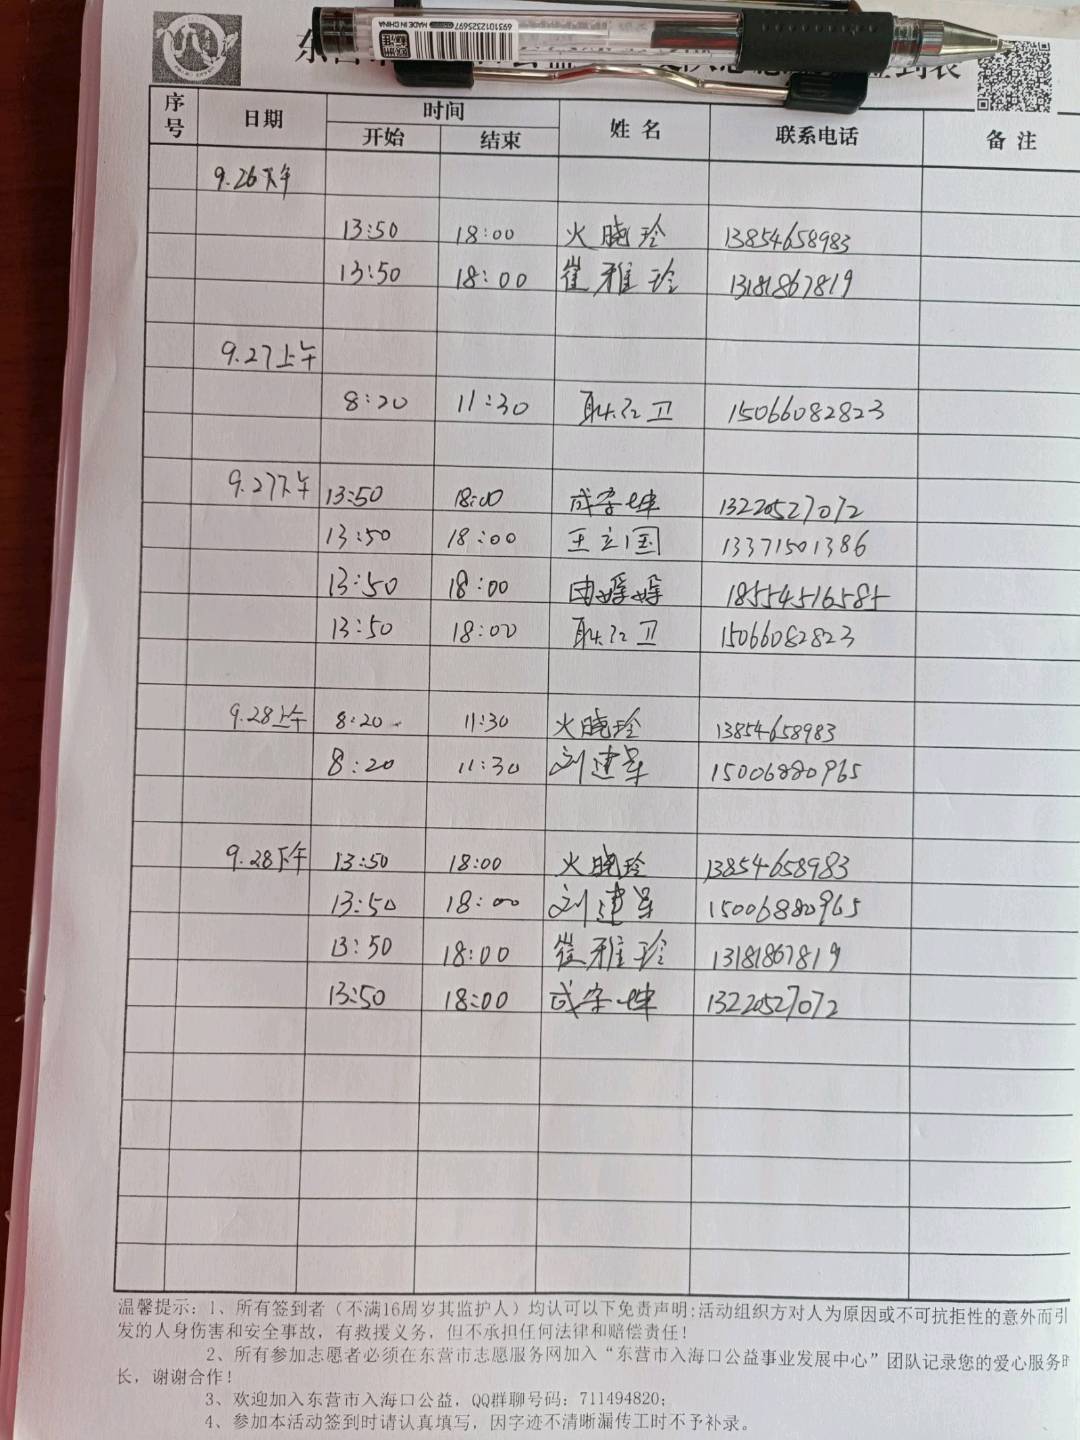 6931012325697
MADE IN CHINA
东营
签到表
序号 日期 时间 姓 名 联系电话 备 注
开始 结束
9.26下午
13:50 18:00 火晓玲 13854658983
13:50 18:00 崔雅玲 13181867819
9.27上午
8:20 11:30 耿红卫 15066082823
9.27下午 13:50 18:00 成学坤 13220527072
13:50 18:00 王立国 13371501386
13:50 18:00 由婷婷 18554516585
13:50 18:00 耿红卫 15066082823
9.28上午 8:20 11:30 火晓玲 13854658983
8:20 11:30 刘建军 15006880965
9.28下午 13:50 18:00 火晓玲 13854658983
13:50 18:00 刘建军 15006880965
13:50 18:00 崔雅玲 13181867819
13:50 18:00 成学坤 13220527072
温馨提示: 1、所有签到者（不满16周岁其监护人）均认可以下免责声明:活动组织方对人为原因或不可抗拒性的意外而引
发的人身伤害和安全事故，有救援义务，但不承担任何法律和赔偿责任!
2、所有参加志愿者必须在东营市志愿服务网加入“东营市入海口公益事业发展中心”团队记录您的爱心服务时
长，谢谢合作!
3、欢迎加入东营市入海口公益，QQ群聊号码: 711494820;
4、参加本活动签到时请认真填写，因字迹不清晰漏传工时不予补录。